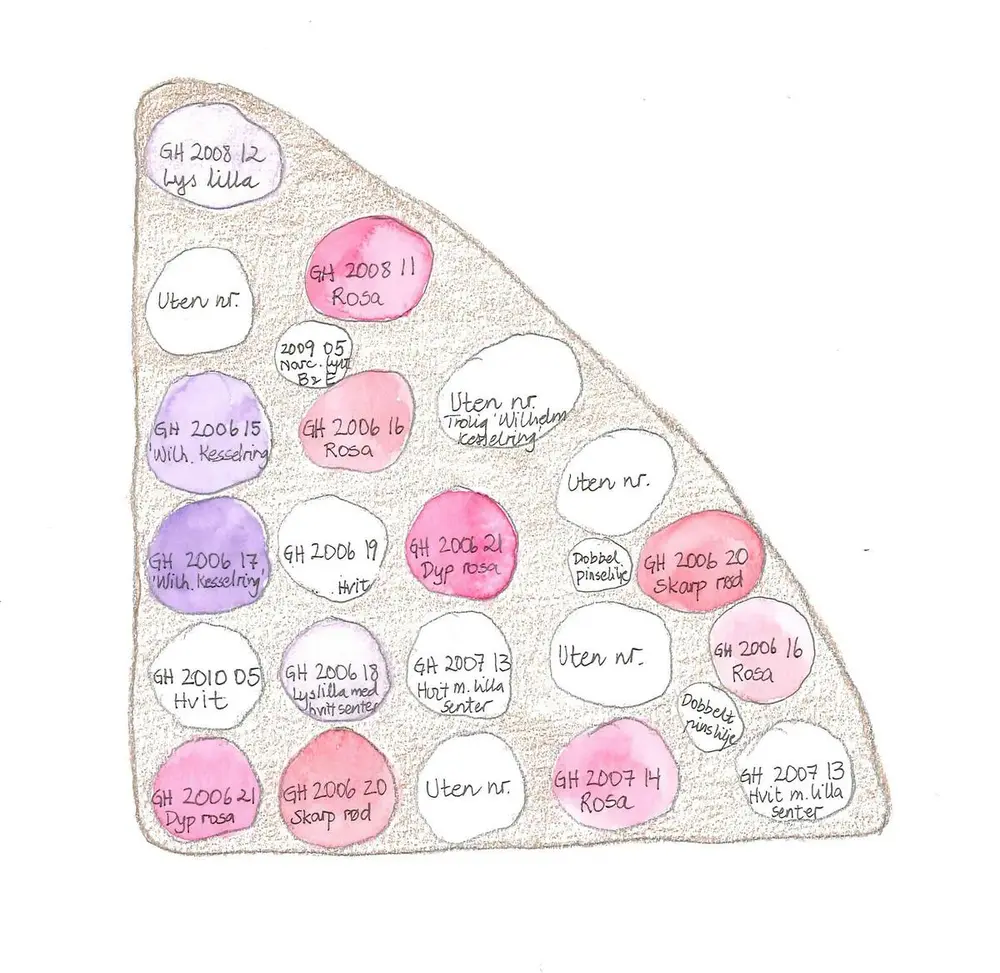 GH 2008 12
Lys lilla
GH 2008 11
Rosa
Uten nr.
2009 05
Narc.
B2 E
GH 2006 15
'Wilh. Kesselring'
GH 2006 16
Rosa
Uten nr.
Trolig 'Wilhelm
Kesselring'
Uten nr.
GH 2006 17
'Wilh. Kesselring'
GH 2006 19
Hvit
GH 2006 21
Dyp rosa
Dobbel
pinselilje
GH 2006 20
Skarp rød
GH 2010 05
Hvit
GH 2006 18
Lys lilla med
hvitt senter
GH 2007 13
Hvit m. lilla
senter
Uten nr.
GH 2006 16
Rosa
Dobbelt
pinslilje
GH 2006 21
Dyp rosa
GH 2006 20
Skarp rød
Uten nr.
GH 2007 14
Rosa
GH 2007 13
Hvit m. lilla
senter